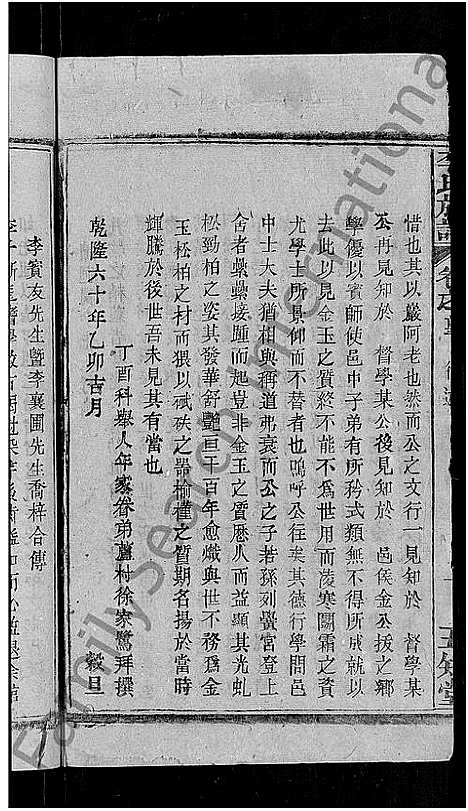 惜也其以巖阿老也然而公之文行一見知於 督學某
公再見知於 督學某公後見知於 邑侯金公援之鄉
學優以師師使邑中子弟有所矜式類無不得所成就以
去此以見金玉之質終不能不爲世用而凌寒鬭霜之資
尤學士所景仰而弗替者也嗚呼公往矣其德行學問邑
中士大夫猶相與稱道弗衰而公之子若孫列黌宮登上
舍者纍纍接踵而起豈非金玉之質歷久而益顯其光虬
松勁柏之姿其發華舒艷亘千百年愈熾與世不務爲金
玉松柏之材而猥以碔砆之器樗櫟之質期名揚於當時
輝騰於後世吾未見其有當也
丁酉科舉人年家眷弟蘆村徐家鷺拜撰
乾隆六十年乙卯吉月 穀旦
李賓友先生暨李襄圃先生喬梓合傳
氏族譜
卷之
FamilySearch International